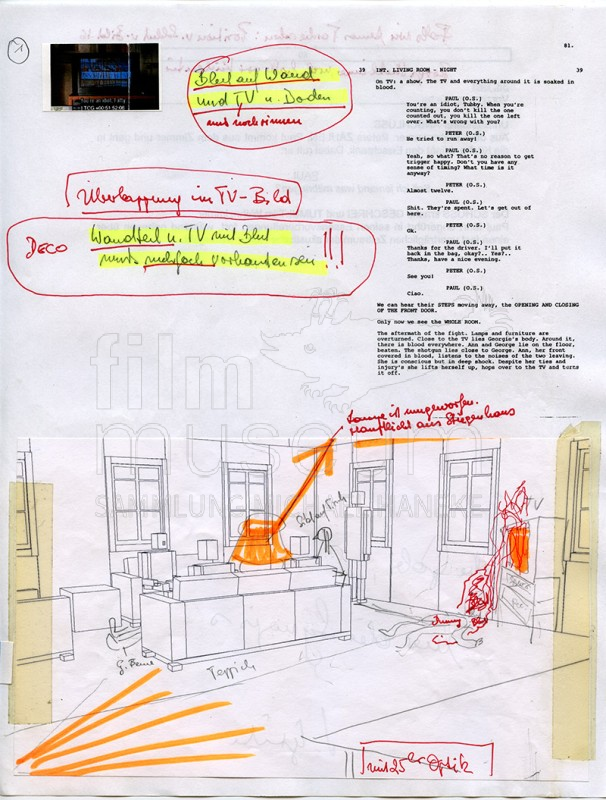 81.
Blut auf Wand
und TV u. Boden
muss noch rinnen
Überlappung im TV-Bild
DECO
Wandteil u. TV mit Blut
muss mehrfach vorhanden sein !!!
39 INT. LIVING ROOM - NIGHT 39
On TV: a show. The TV and everything around it is soaked in
blood.
PAUL (O.S.)
You're an idiot, Tubby. When you're
counting, you don't kill the one
counted out, you kill the one left
over. What's wrong with you?
PETER (O.S.)
He tried to run away!
PAUL (O.S.)
Yeah, so what? That's no reason to get
trigger happy. Don't you have any
sense of timing? What time is it
anyway?
PETER (O.S.)
Almost twelve.
PAUL (O.S.)
Shit. They're spent. Let's get out of
here.
PETER (O.S.)
Ok.
PAUL (O.S.)
Thanks for the driver. I'll put it
back in the bag, okay?.. Yes?..
Thanks, have a nice evening.
PETER (O.S.)
See you!
PAUL (O.S.)
Ciao.
We can hear their STEPS moving away, the OPENING AND CLOSING
OF THE FRONT DOOR.
Only now we see the WHOLE ROOM.
The aftermath of the fight. Lamps and furniture are
overturned. Close to the TV lies Georgie's body. Around it,
there is blood everywhere. Ann and George lie on the floor,
beaten. The shotgun lies close to George. Ann, her front
covered in blood, listens to the noises of the two leaving.
She is conscious but in deep shock. Despite her ties and
injury's she lifts herself up, hops over to the TV and turns
it off.
film
museum
SAMMLUNG MICHAEL HANEKE
Lampe ist umgeworfen.
Hauptlicht aus Stiegenhaus
TV
G. Beine
Teppich
mit 25er Optik